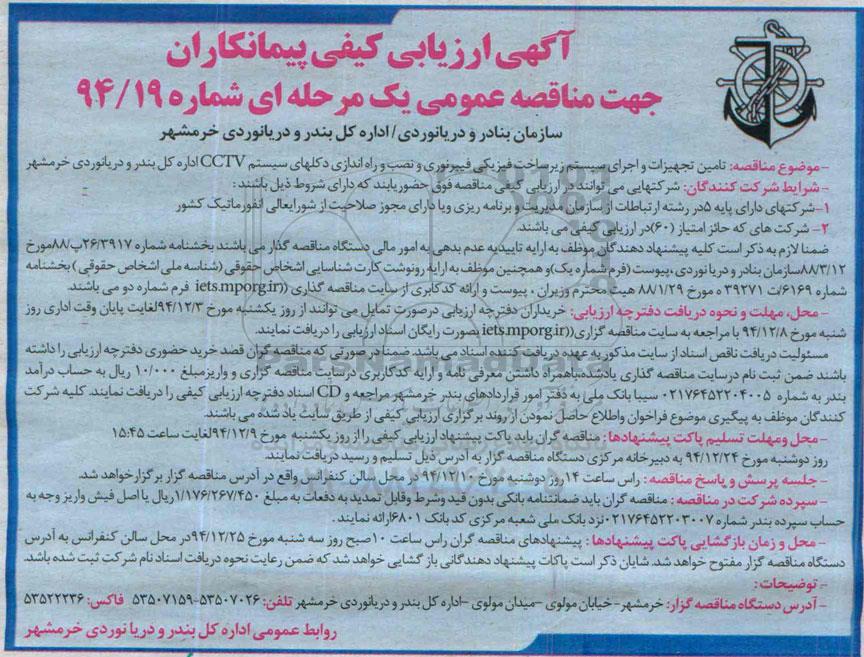 آگهی ارزیابی کیفی پیمانکاران
جهت مناقصه عمومی یک مرحله ای شماره ۹۴/۱۹
سازمان بنادر و دریانوردی/ اداره کل بندر و دریانوردی خرمشهر
-موضوع مناقصه: تامین تجهیزات و اجرای سیستم زیرساخت فیزیکی فیبرنوری و نصب و راه اندازی دکلهای سیستم CCTV اداره کل بندر و دریانوردی خرمشهر
- شرایط شرکت کنندگان: شرکتهایی می توانند در ارزیابی کیفی مناقصه فوق حضور یابند که دارای شروط ذیل باشند:
۱-شرکتهای دارای پایه ۵در رشته ارتباطات از سازمان مدیریت و برنامه ریزی ویا دارای مجوز صلاحیت از شورایعالی انفورماتیک کشور
۲- شرکت های که حائز امتیاز (۶۰)در ارزیابی کیفی می باشند.
ضمنا لازم به ذکر است کلیه پیشنهاد دهندگان موظف به ارایه تاییدیه عدم بدهی به امور مالی دستگاه مناقصه گذار می باشند بخشنامه شماره ۲۶/۳۹۱۷پ/۸۸مورخ
۸۸/۳/۱۲سازمان بنادر و دریا نوردی ،پیوست (فرم شماره یک)و همچنین موظف به ارایه رونوشت کارت شناسایی اشخاص حقوقی (شناسه ملی اشخاص حقوقی ) بخشنامه
شماره ۶۱۶۹/ت ۳۹۲۷۱ ه مورخ ۸۸/۱/۲۹ هیئت محترم وزیران ، پیوست و ارائه کد کابری از سایت مناقصه گذاری ((iets.mporg.ir فرم شماره دو می باشند.
-محل، مهلت و نحوه دریافت دفترچه ارزیابی: خریداران دفترچه ارزیابی درصورت تمایل می توانند از روز یکشنبه مورخ ۹۴/۱۲/۳لغایت پایان وقت اداری روز
شنبه مورخ ۹۴/۱۲/۸ با مراجعه به سایت مناقصه گزاری((iets.mporg.irبصورت رایگان اسناد ارزیابی را دریافت نمایند.
مسئولیت دریافت ناقص اسناد از سایت مذکور به عهده دریافت کننده اسناد می باشد. ضمنا در صورتی که مناقصه گران قصد خرید حضوری دفترچه ارزیابی را داشته
باشند ضمن ثبت نام درسایت مناقصه گذاری یادشده،باهمراه داشتن معرفی نامه و ارایه کد کاربری در سایت مناقصه گزاری و واریزمبلغ ۱۰/۰۰۰ ریال به حساب درآمد
بندر به شماره ۰۲۱۷۶۴۵۲۲۰۴۰۰۵ سیبا بانک ملی به دفتر امور قراردادهای بندر خرمشهر مراجعه و CD اسناد دفترچه ارزیابی کیفی را دریافت نمایند. کلیه شرکت
کنندگان موظف به پیگیری موضوع فراخوان واطلاع حاصل نمودن از روند برگزاری ارزیابی کیفی از طریق سایت یاد شده می باشند.
-محل ومهلت تسلیم پاکت پیشنهادها: مناقصه گران باید پاکت پیشنهاد ارزیابی کیفی را از روز یکشنبه مورخ ۹۴/۱۲/۹لغایت ساعت ۱۵:۴۵
روز دوشنبه مورخ ۹۴/۱۲/۲۴ به دبیرخانه مرکزی دستگاه مناقصه گزار به آدرس ذیل تسلیم و رسید دریافت نمایند.
- جلسه پرسش و پاسخ مناقصه: راس ساعت ۱۴روز دوشنبه مورخ ۹۴/۱۲/۱۰ در محل سالن کنفرانس واقع در آدرس مناقصه گزار برگزار خواهد شد.
- سپرده شرکت در مناقصه: مناقصه گران باید ضمانتنامه بانکی بدون قید وشرط وقابل تمدید به دفعات به مبلغ ۱/۱۷۶/۲۶۷/۴۵۰ریال یا اصل فیش واریز وجه به
حساب سپرده بندر شماره ۰۲۱۷۶۴۵۲۲۰۳۰۰۷نزد بانک ملی شعبه مرکزی کد بانک ۶۸۰۱ارائه نمایند.
- محل و زمان بازگشایی پاکت پیشنهادها: پیشنهادهای مناقصه گران راس ساعت ۱۰صبح روز سه شنبه مورخ ۹۴/۱۲/۲۵در محل سالن کنفرانس به آدرس
دستگاه مناقصه گزار مفتوح خواهد شد. شایان ذکر است پاکات پیشنهاد دهندگانی بازگشایی خواهد شد که ضمن رعایت نحوه دریافت اسناد نام شرکت ثبت شده باشد.
- توضیحات:
- آدرس دستگاه مناقصه گزار: خرمشهر- خیابان مولوی -میدان مولوی -اداره کل بندر و دریانوردی خرمشهر تلفن: ۵۳۵۰۷۰۲۶-۵۳۵۰۷۱۵۹ فاکس: ۵۳۵۲۲۲۳۶
روابط عمومی اداره کل بندر و دریا نوردی خرمشهر